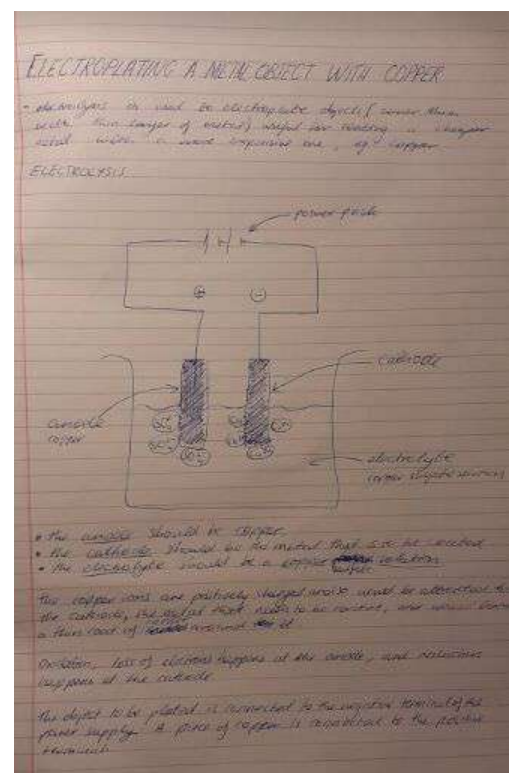 ELECTROPLATING A METAL OBJECT WITH COPPER
- electrolysis is used to electroplate objects (cover them
with thin layer of metal) useful for coating a cheaper
metal with a more expensive one, eg: copper
ELECTROLYSIS
power pack
+ -
cathode
anode
copper
electrolyte
copper solution
• the anode should be copper
• the cathode should be the metal that is to be coated
• the electrolyte should be a copper solution
The copper ions are positively charged would be attracted to
the cathode, the that needs to be coated, and would form
a thin coat of around it
Oxidation, loss of electrons happens at the anode, and reduction
happens at the cathode.
The object to be plated is connected to the negative terminal of the
power supply. A piece of copper is connected to the positive
terminal.